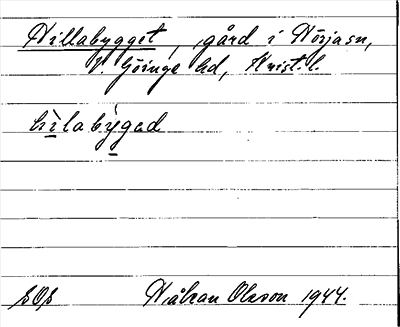 Hillabygget, gård i Nörjasn,
V. Göinge hd, Krist. l.
hìlabỳgəd
SOS Håkan Olsson 1944.